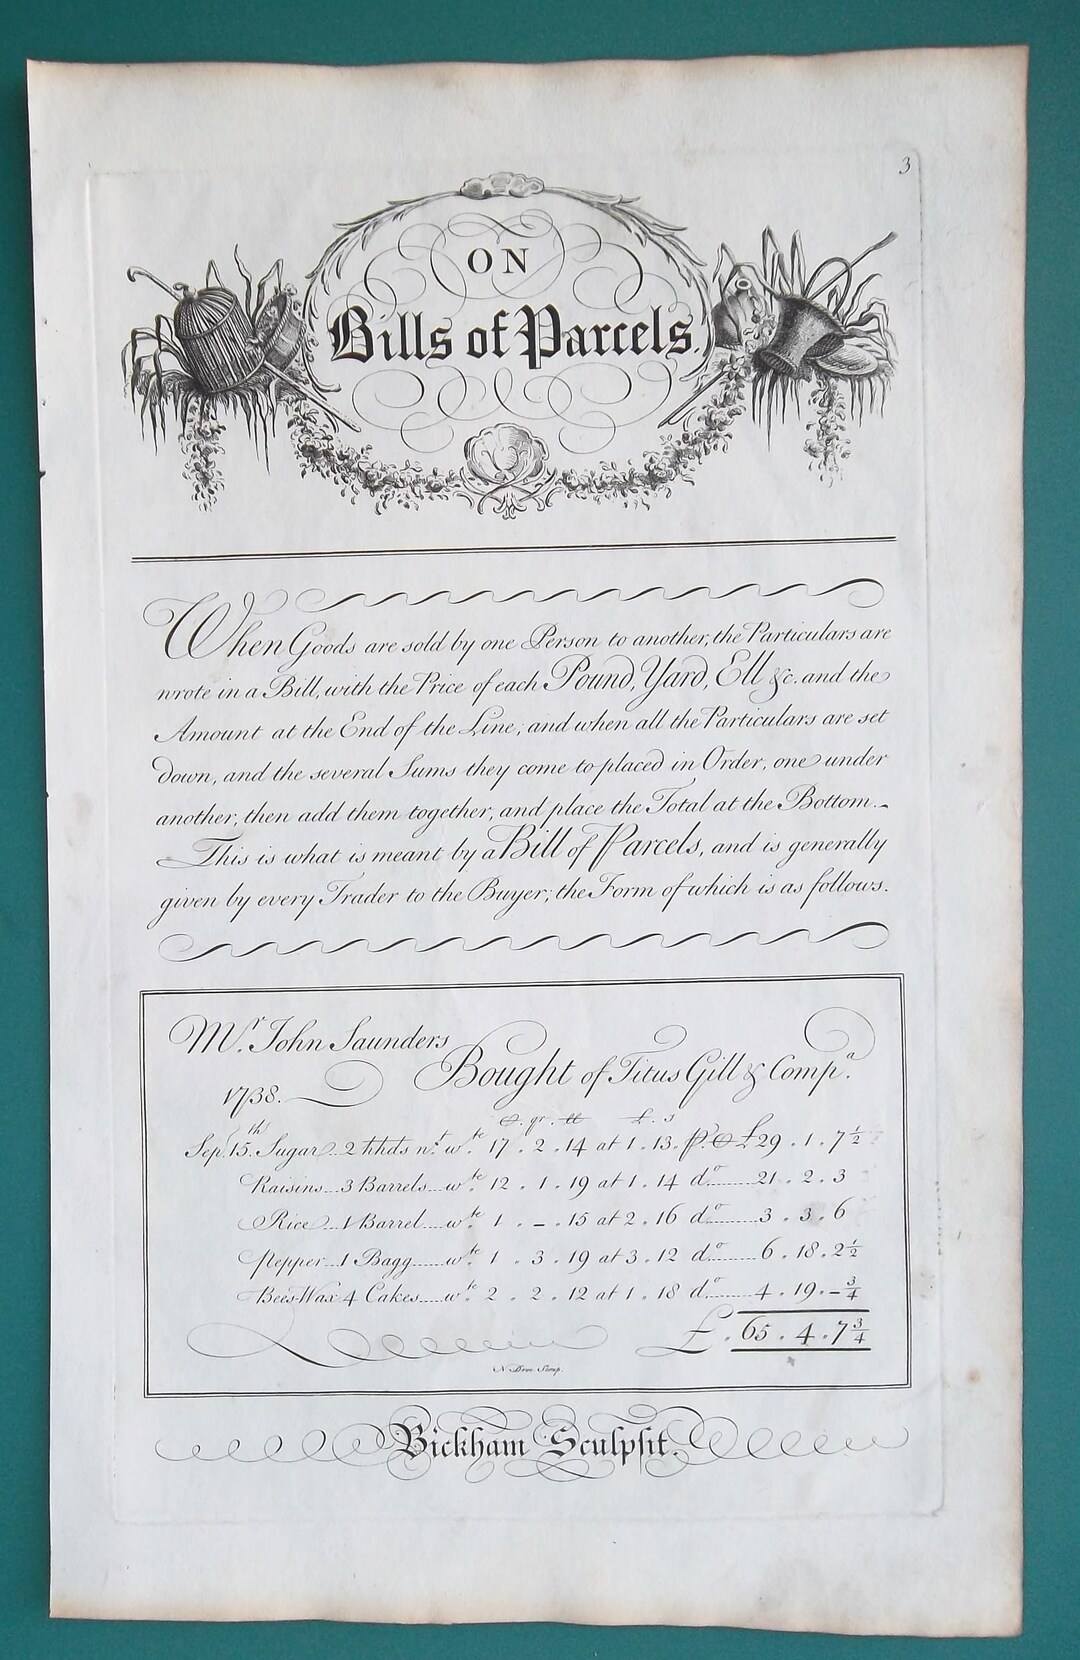 3
ON
Bills of Parcels.
When Goods are sold by one Person to another, the Particulars are
wrote in a Bill, with the Price of each Pound, Yard, Ell &c. and the
Amount at the End of the Line; and when all the Particulars are set
down, and the several Sums they come to placed in Order, one under
another, then add them together, and place the Total at the Bottom.
This is what is meant by a Bill of Parcels, and is generally
given by every Trader to the Buyer; the Form of which is as follows.
Mr. John Saunders
Bought of Titus Gill & Compa.
1738.
C. qr. lb £. s
Sep. 15th. Sugar 2 hhds nt. wte. 17 . 2 . 14 at 1 . 13 . p. C £29 . 1 . 7 1/2
Raisins 3 Barrels wte. 12 . 1 . 19 at 1 . 14 do. 21 . 2 . 3
Rice 1 Barrel wte. 1 . - . 15 at 2 . 16 do. 3 . 3 . 6
Pepper 1 Bagg wte. 1 . 3 . 19 at 3 . 12 do. 6 . 18 . 2 1/2
Bees-Wax 4 Cakes wte. 2 . 2 . 12 at 1 . 18 do. 4 . 19 . - 3/4
£. 65 . 4 . 7 3/4
N Dove Scrip.
Bickham Sculpsit.